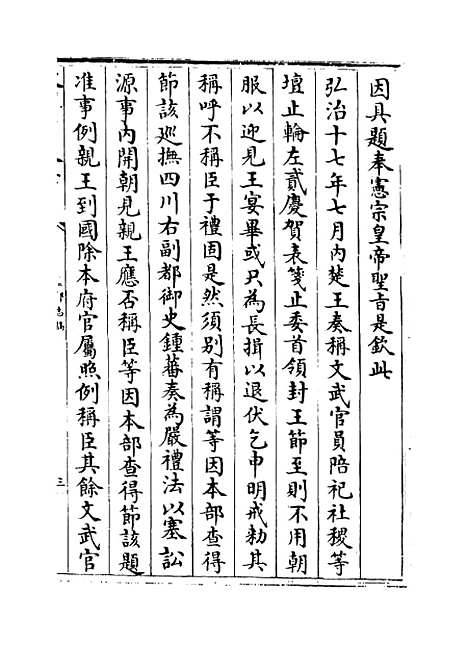 因具題奉憲宗皇帝聖旨是欽此
弘治十七年七月內楚王奏稱文武官員陪祀社稷等
壇止輪左貳慶賀表箋止委首領封王節至則不用朝
服以迎見王宴畢或只為長揖以退伏乞申明戒勑其
稱呼不稱臣于禮固是然須別有稱謂等因本部查得
節該巡撫四川右副都御史鍾蕃奏為嚴禮法以塞訟
源事內開朝見親王應否稱臣等因本部查得節該題
准事例親王到國除本府官屬照例稱臣其餘文武官
三